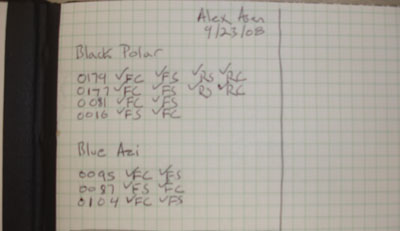 Alex, Asen
9/23/08
Black Polar
0179 ✓FC ✓FS ✓RS ✓RC
0177 ✓FC ✓FS ✓RS ✓RC
0081 ✓FC ✓FS
0016 ✓FS ✓FC
Blue Azi
0095 ✓FC ✓FS
0087 ✓FS ✓FC
0104 ✓FC ✓FS